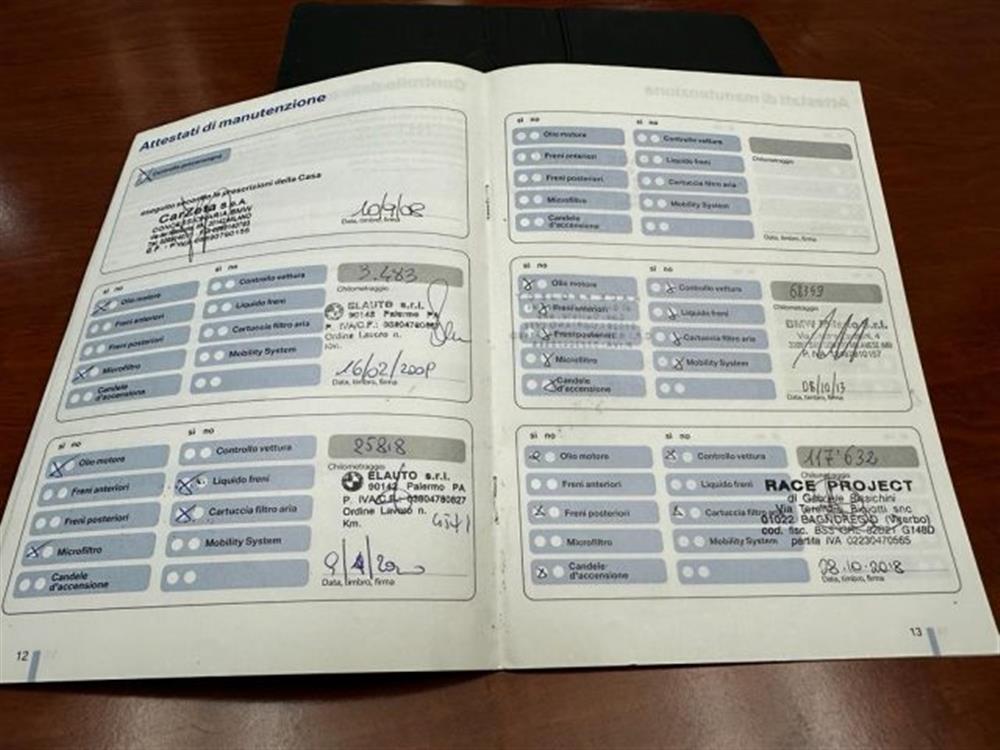 Attestati di manutenzione
Controllo preconsegna
eseguito secondo le prescrizioni della Casa
CarZeta S.P.A.
CONCESSIONARIA BMW
20142 MILANO
10/9/08
Data, timbro, firma
sì no
sì no
Olio motore
Controllo vettura
3.483
Freni anteriori
Liquido freni
Chilometraggio
Freni posteriori
Cartuccia filtro aria
ELAUTO s.r.l.
Palermo PA
P. IVA/C.F.:
Ordine Lavoro n.
Km.
Microfiltro
Mobility System
16/02/2009
Candele d'accensione
Data, timbro, firma
sì no
sì no
Olio motore
Controllo vettura
25818
Freni anteriori
Liquido freni
Chilometraggio
Freni posteriori
Cartuccia filtro aria
ELAUTO s.r.l.
Palermo PA
P. IVA/C.F.
Ordine Lavoro n.
Km.
Microfiltro
Mobility System
Candele d'accensione
Data, timbro, firma
12
sì no
sì no
Olio motore
Controllo vettura
Freni anteriori
Liquido freni
Chilometraggio
Freni posteriori
Cartuccia filtro aria
Microfiltro
Mobility System
Candele d'accensione
Data, timbro, firma
sì no
sì no
Olio motore
Controllo vettura
Freni anteriori
Liquido freni
Chilometraggio
Freni posteriori
Cartuccia filtro aria
BMW
s.r.l.
Microfiltro
Mobility System
08/10/13
Candele d'accensione
Data, timbro, firma
sì no
sì no
Olio motore
Controllo vettura
117'632
Freni anteriori
Liquido freni
Chilometraggio
RACE PROJECT
di
Via
snc
01022 BAGNOREGIO (Viterbo)
cod. fisc.
G148D
partita IVA 02230470565
Freni posteriori
Cartuccia filtro aria
Microfiltro
Mobility System
Candele d'accensione
08.10.2018
Data, timbro, firma
13